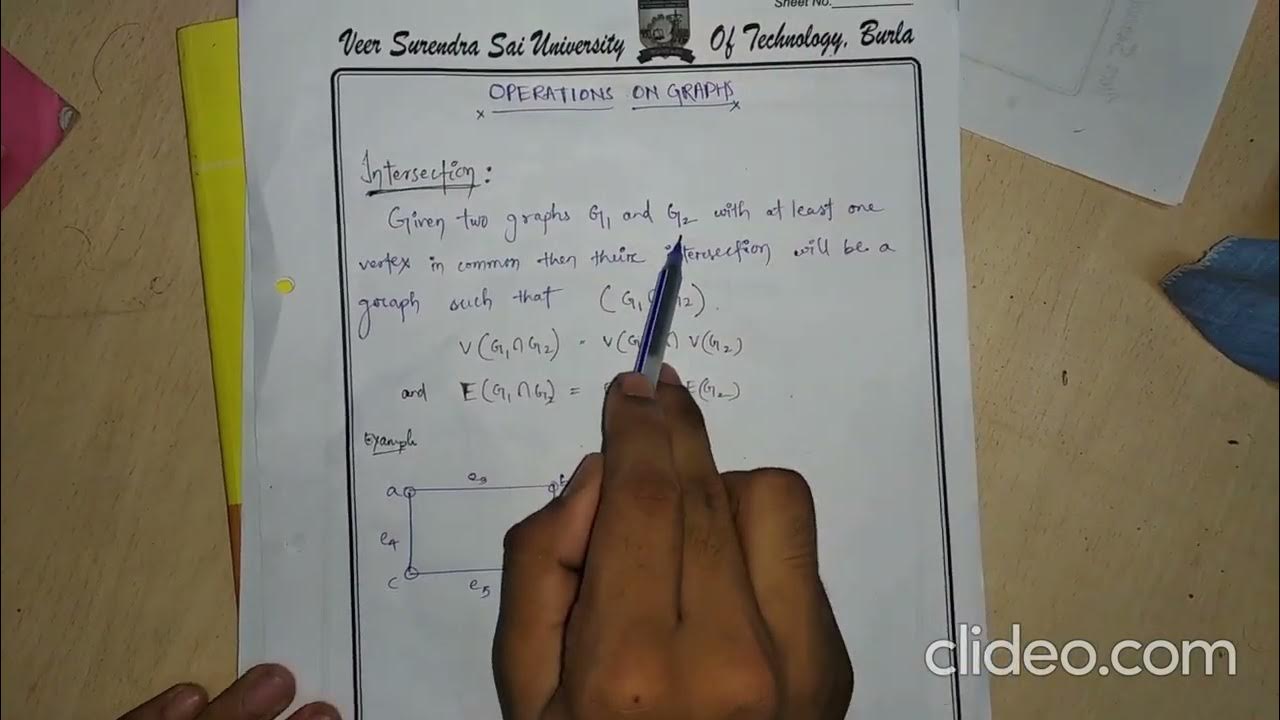 Sheet No.
Veer Surendra Sai University Of Technology, Burla
OPERATIONS ON GRAPHS
Intersection:
Given two graphs G₁ and G₂ with at least one
vertex in common then their intersection will be a
graph such that (G₁ ∩ G₂).
V(G₁∩G₂) = V(G ∩ V(G₂)
and E(G₁∩G₂) = E(G₂)
Example
a e₃
e₄
c e₅
clideo.com